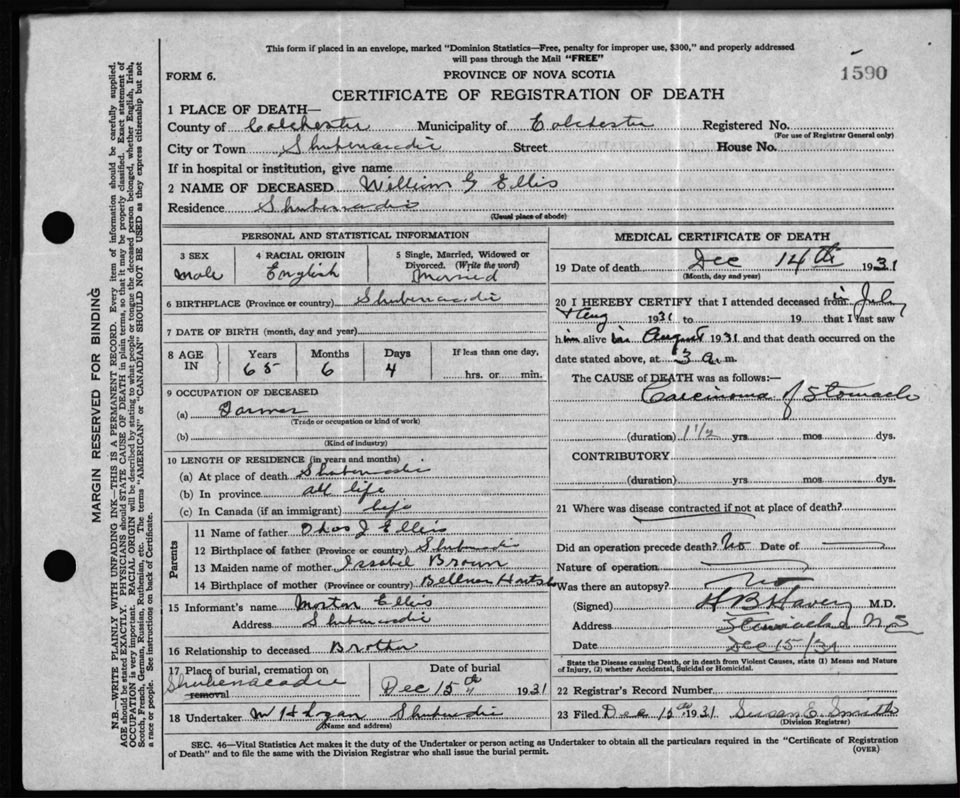 This form if placed in an envelope, marked "Dominion Statistics—Free, penalty for improper use, $300," and properly addressed
will pass through the Mail "FREE"
FORM 6.
PROVINCE OF NOVA SCOTIA
1590
CERTIFICATE OF REGISTRATION OF DEATH
1 PLACE OF DEATH—
County of Colchester Municipality of Colchester Registered No.
(For use of Registrar General only)
City or Town Shubenacadie Street House No.
If in hospital or institution, give name
2 NAME OF DECEASED William G Ellis
Residence Shubenacadie
(Usual place of abode)
MARGIN RESERVED FOR BINDING
N.B.—WRITE PLAINLY WITH UNFADING INK—THIS IS A PERMANENT RECORD. Every item of information should be carefully supplied.
AGE should be stated EXACTLY. PHYSICIANS should STATE CAUSE OF DEATH in plain terms, so that it may be properly classified. Exact statement of
OCCUPATION is very important. RACIAL ORIGIN will be described by stating to what people or tongue the deceased person belonged, whether English, Irish,
Scotch, French, German, Russian, Ruthenian, etc. The terms "AMERICAN" or "CANADIAN" SHOULD NOT BE USED as they express citizenship but not
a race or people. See instructions on back of Certificate.
PERSONAL AND STATISTICAL INFORMATION
3 SEX
Male
4 RACIAL ORIGIN
English
5 Single, Married, Widowed or
Divorced. (Write the word)
Married
6 BIRTHPLACE (Province or country) Shubenacadie
7 DATE OF BIRTH (month, day and year)
8 AGE IN
Years Months Days If less than one day,
65 6 4 hrs. or min.
9 OCCUPATION OF DECEASED
(a) Farmer
(Trade or occupation or kind of work)
(b)
(Kind of industry)
10 LENGTH OF RESIDENCE (in years and months)
(a) At place of death Shubenacadie
(b) In province all life
(c) In Canada (if an immigrant) life
Parents
11 Name of father J Ellis
12 Birthplace of father (Province or country) Shubenacadie
13 Maiden name of mother Issabel Brown
14 Birthplace of mother (Province or country)
15 Informant's name Morton Ellis
Address Shubenacadie
16 Relationship to deceased Brother
17 Place of burial, cremation or
removal
Shubenacadie
Date of burial
Dec 15th 1931
18 Undertaker W H Logan Shubenacadie
(Name and address)
MEDICAL CERTIFICATE OF DEATH
19 Date of death Dec 14th 1931
(Month, day and year)
20 I HEREBY CERTIFY that I attended deceased from in July
+ Aug 1931 to 19 that I last saw
him alive in August 1931 and that death occurred on the
date stated above, at 3 a. m.
The CAUSE of DEATH was as follows:—
Carcinoma of Stomach
(duration) 1 1/2 yrs. mos. dys.
CONTRIBUTORY
(duration) yrs. mos. dys.
21 Where was disease contracted if not at place of death?
Did an operation precede death? No Date of
Nature of operation
Was there an autopsy? no
(Signed) M.D.
Address N S
Date Dec 15/31
State the Disease causing Death, or in death from Violent Causes, state (1) Means and Nature
of Injury, (2) whether Accidental, Suicidal or Homicidal.
22 Registrar's Record Number
23 Filed Dec 15th 1931 Susan E. Smith
(Division Registrar)
SEC. 46—Vital Statistics Act makes it the duty of the Undertaker or person acting as Undertaker to obtain all the particulars required in the "Certificate of Registration
of Death" and to file the same with the Division Registrar who shall issue the burial permit.
(OVER)